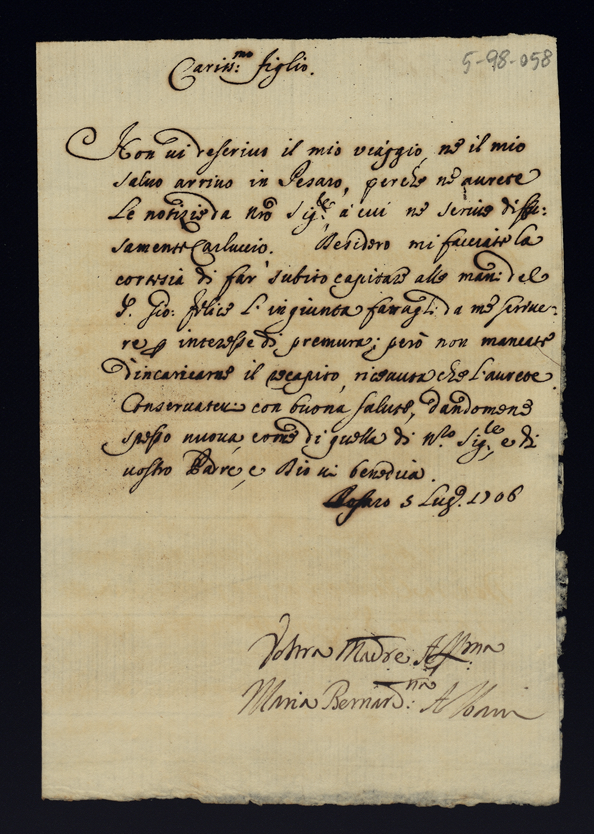 5-98-058
Cariss:mo figlio.
Non vi descrivo il mio viaggio, ne il mio
salvo arrivo in Pesaro, perche ne avrete
le notizie da Nro Sig.le a cui ne scrive diffu:
samente Carluccio. Desidero mi facciate la
cortesia di far subito capitare alle mani del
P. Gio: felice l'ingiunta da me scrive:
re p interesse di premura; però non mancate
d'incaricarne il recapito, ricevuta che l'avrete.
Conservatevi con buona salute, dandomene
spesso nuova, come di quella di Nro Sig.le, e di
vostro Padre, e Dio vi benedica.
Pesaro 5 Lug.o 1706
Vostra Madre Aff.ma
Maria Bernard:na Albani